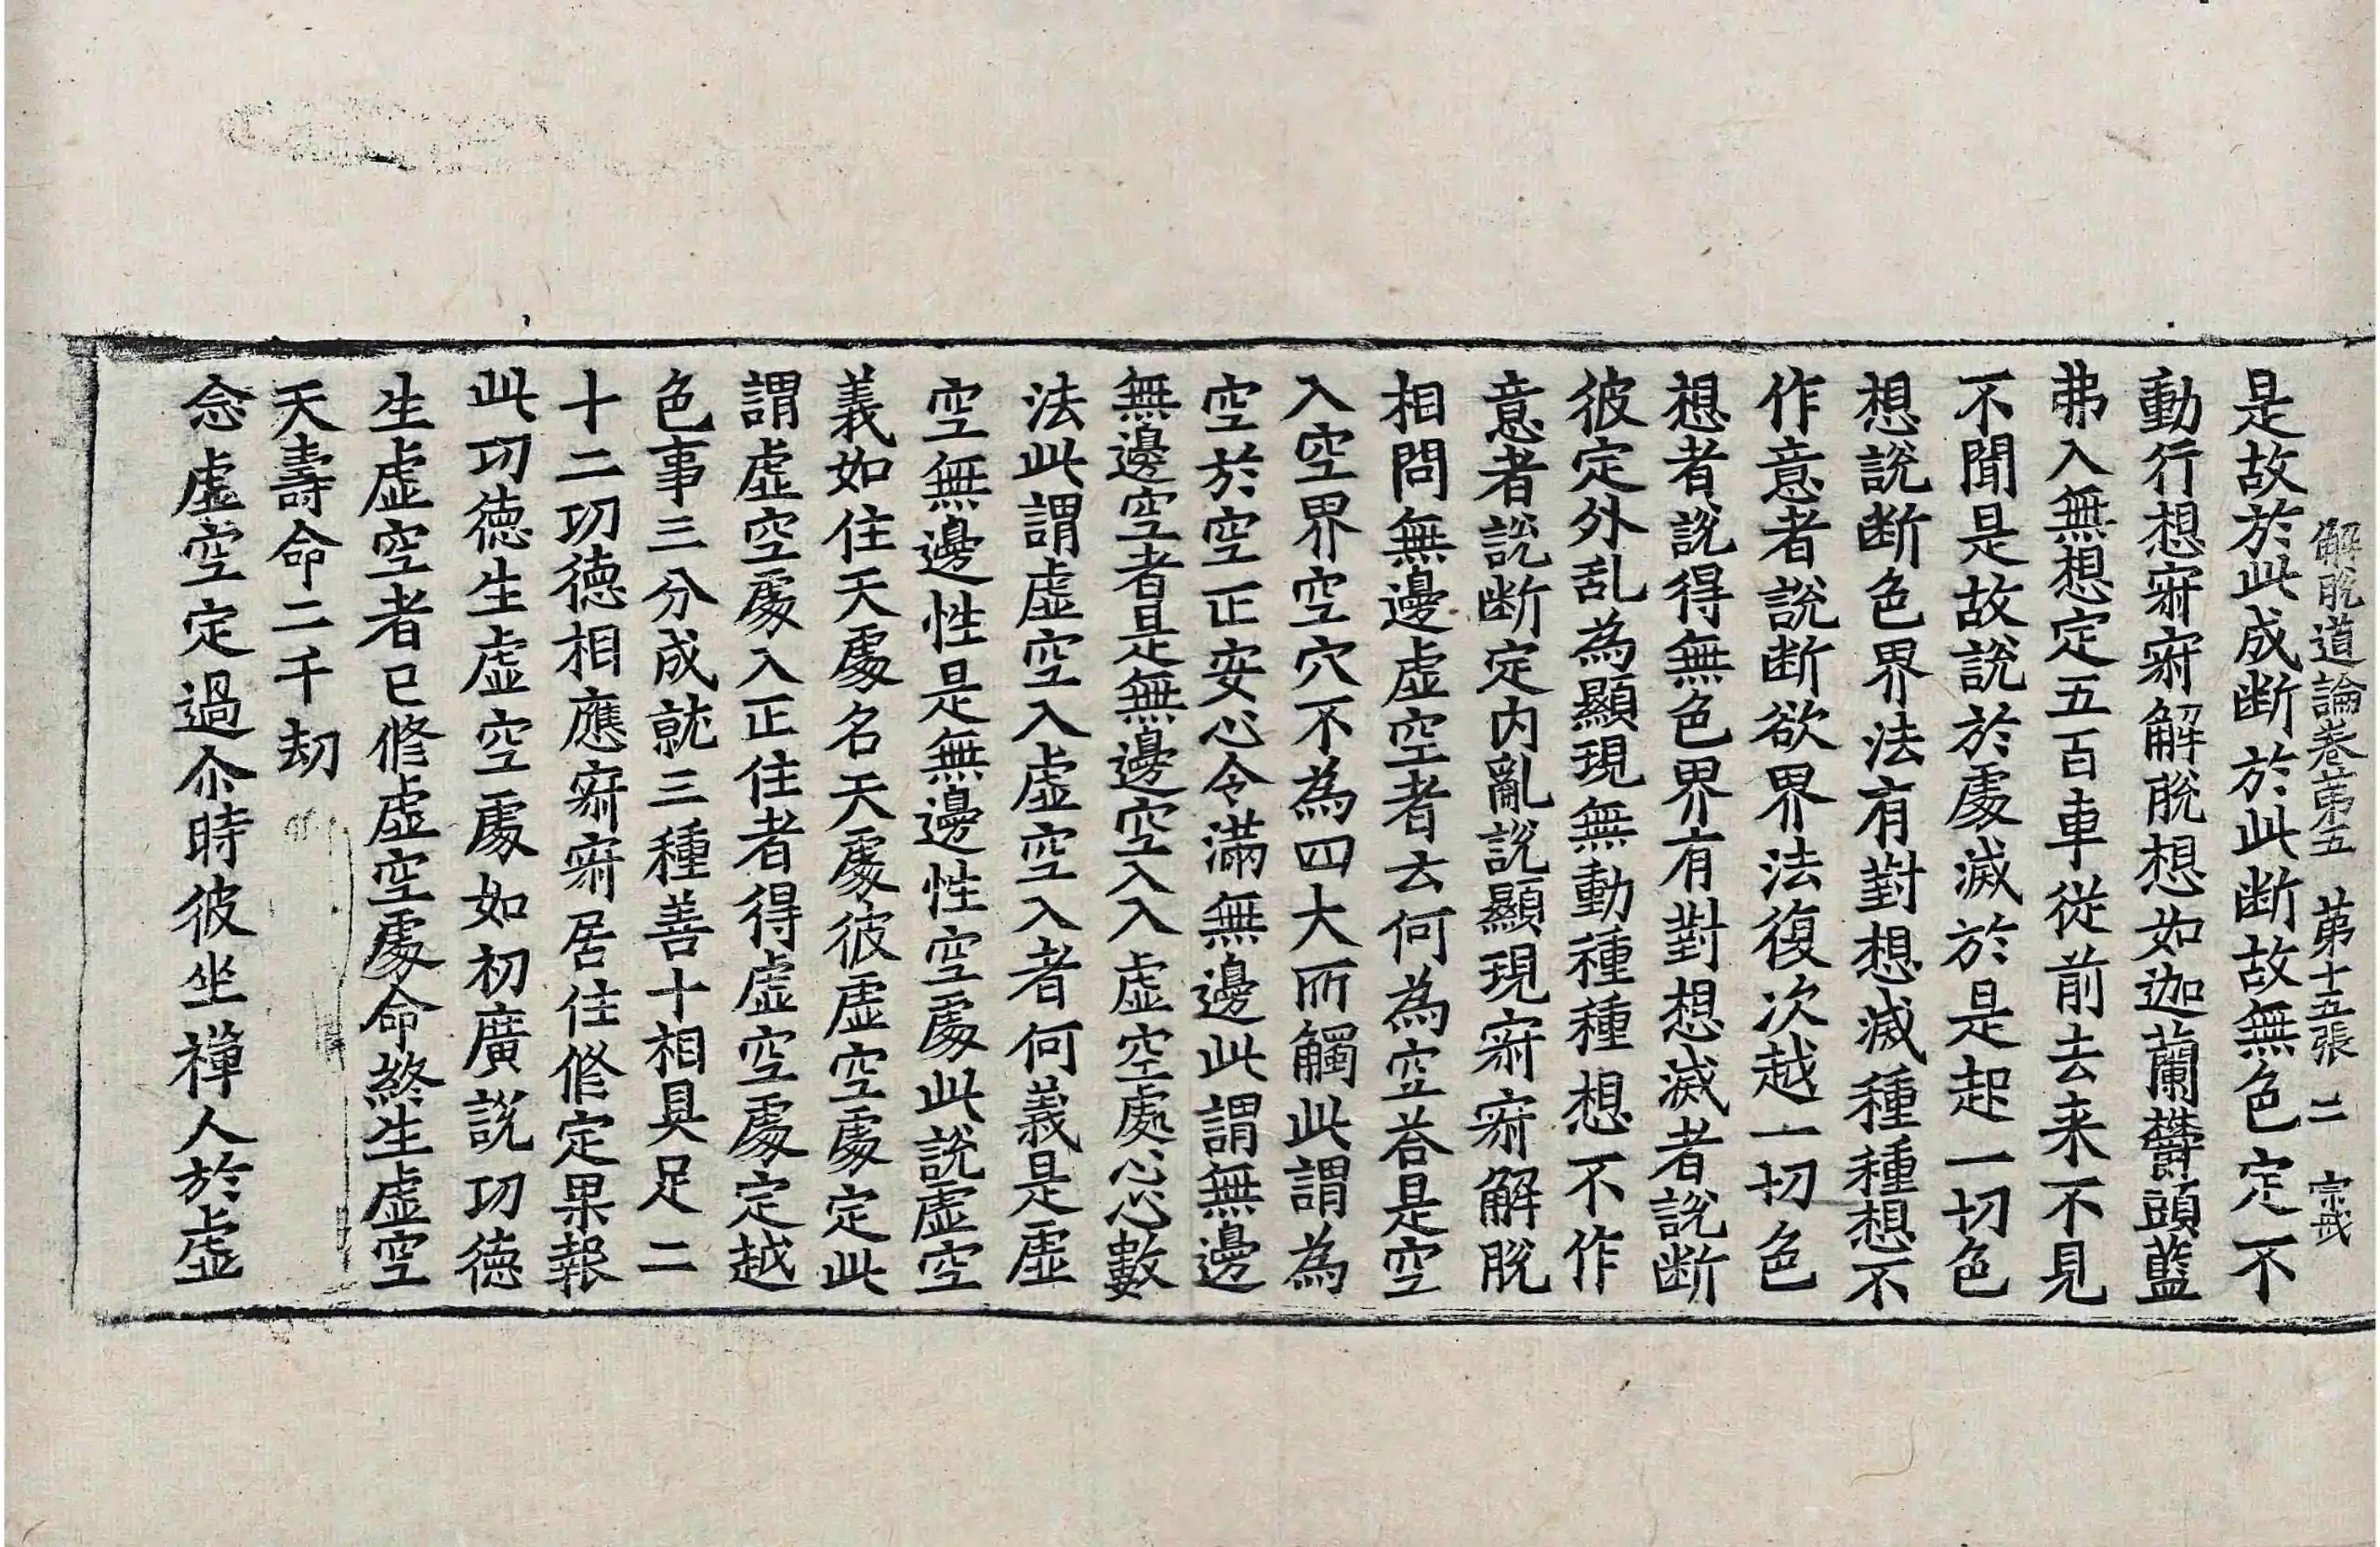 解脫道論卷苐五 苐十五張 二 㝎戒
是故於此成断於此断故無色定不
動行想㝥㝥解脫想如迦蘭欝頭藍
弗入無想定五百車從前去来不見
不聞是故說於處滅於是起一切色
想說断色界法有對想滅種種想不
作意者說断欲界法復次越一切色
想者說得無色界有對想滅者說断
彼定外乱為顯現無動種種想不作
意者說断定内亂說顯現㝥㝥解脫
相問無邊虛空者云何為空荅是空
入空界空穴不為四大所觸此謂為
空於空正安心令滿無邊此謂無邊
無邊空者是無邊空入入虛空處心心數
法此謂虛空入虛空入者何義是虛
空無邊性是無邊性空處此說虛空
義如住天處名天處彼虛空處定此
謂虛空處入正住者得虛空處定越
色事三分成就三種善十相具足二
十二功德相應㝥㝥居住修定果報
此功德生虛空處如初廣說功德
生虛空者已修虛空處命終生虛空
天壽命二千劫
念虛空定過尒時彼坐禪人於虛